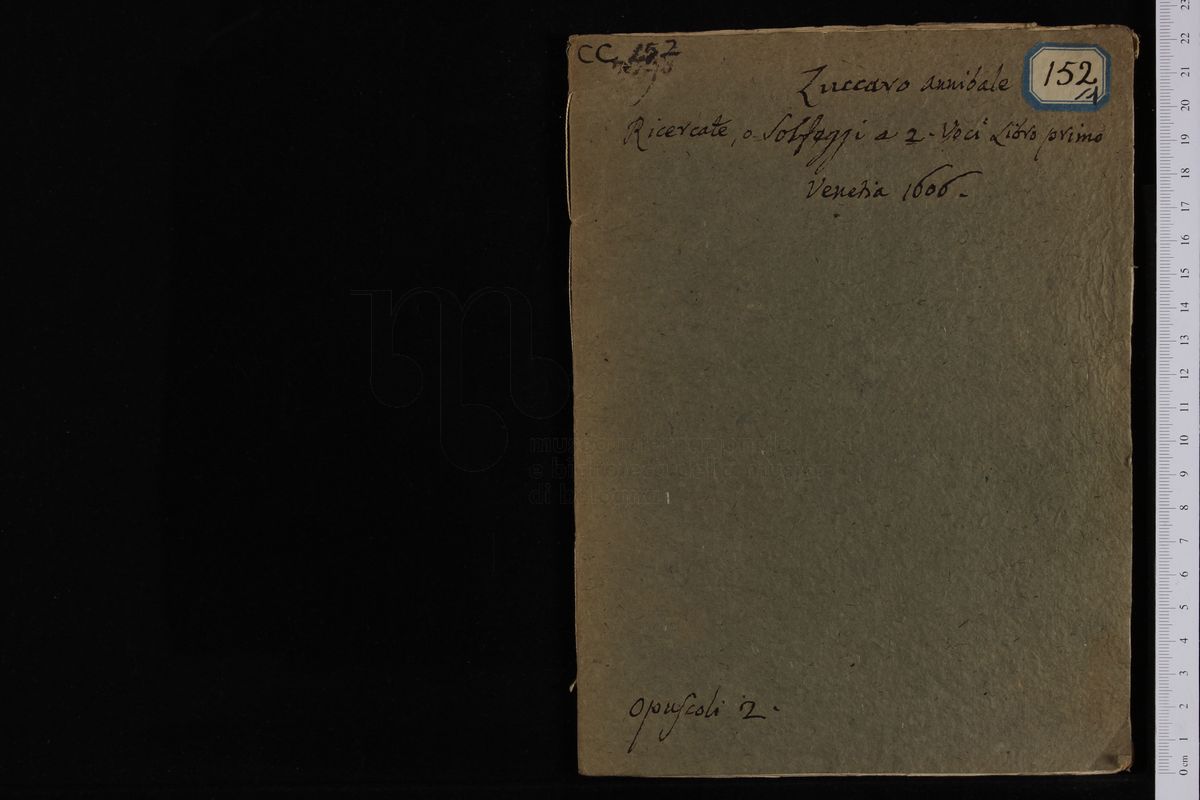 CC. 152
152
/1
Zuccaro annibale
Ricercate, o Solfeggi a 2. Voci Libro primo
Venetia 1606.
museo
e biblioteca della musica
di bologna
Opuſcoli 2.
0 cm 1 2 3 4 5 6 7 8 9 10 11 12 13 14 15 16 17 18 19 20 21 22 23